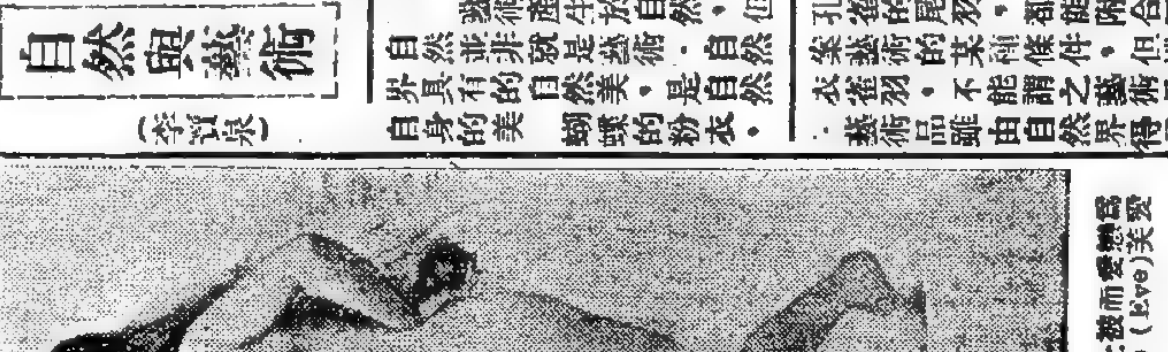 自然與藝術
(李寶泉)
藝術產生於自然。但
自然並非就是藝術.自然
界具有的自然美,是自然
自身的美 蝴蝶的粉衣,
孔雀的尾羽,都能附合
藝術的某種條件,但
衣雀羽,不能謂之藝術
藝術品雖由自然界得
愛芙(Eve)
爲戀愛而被